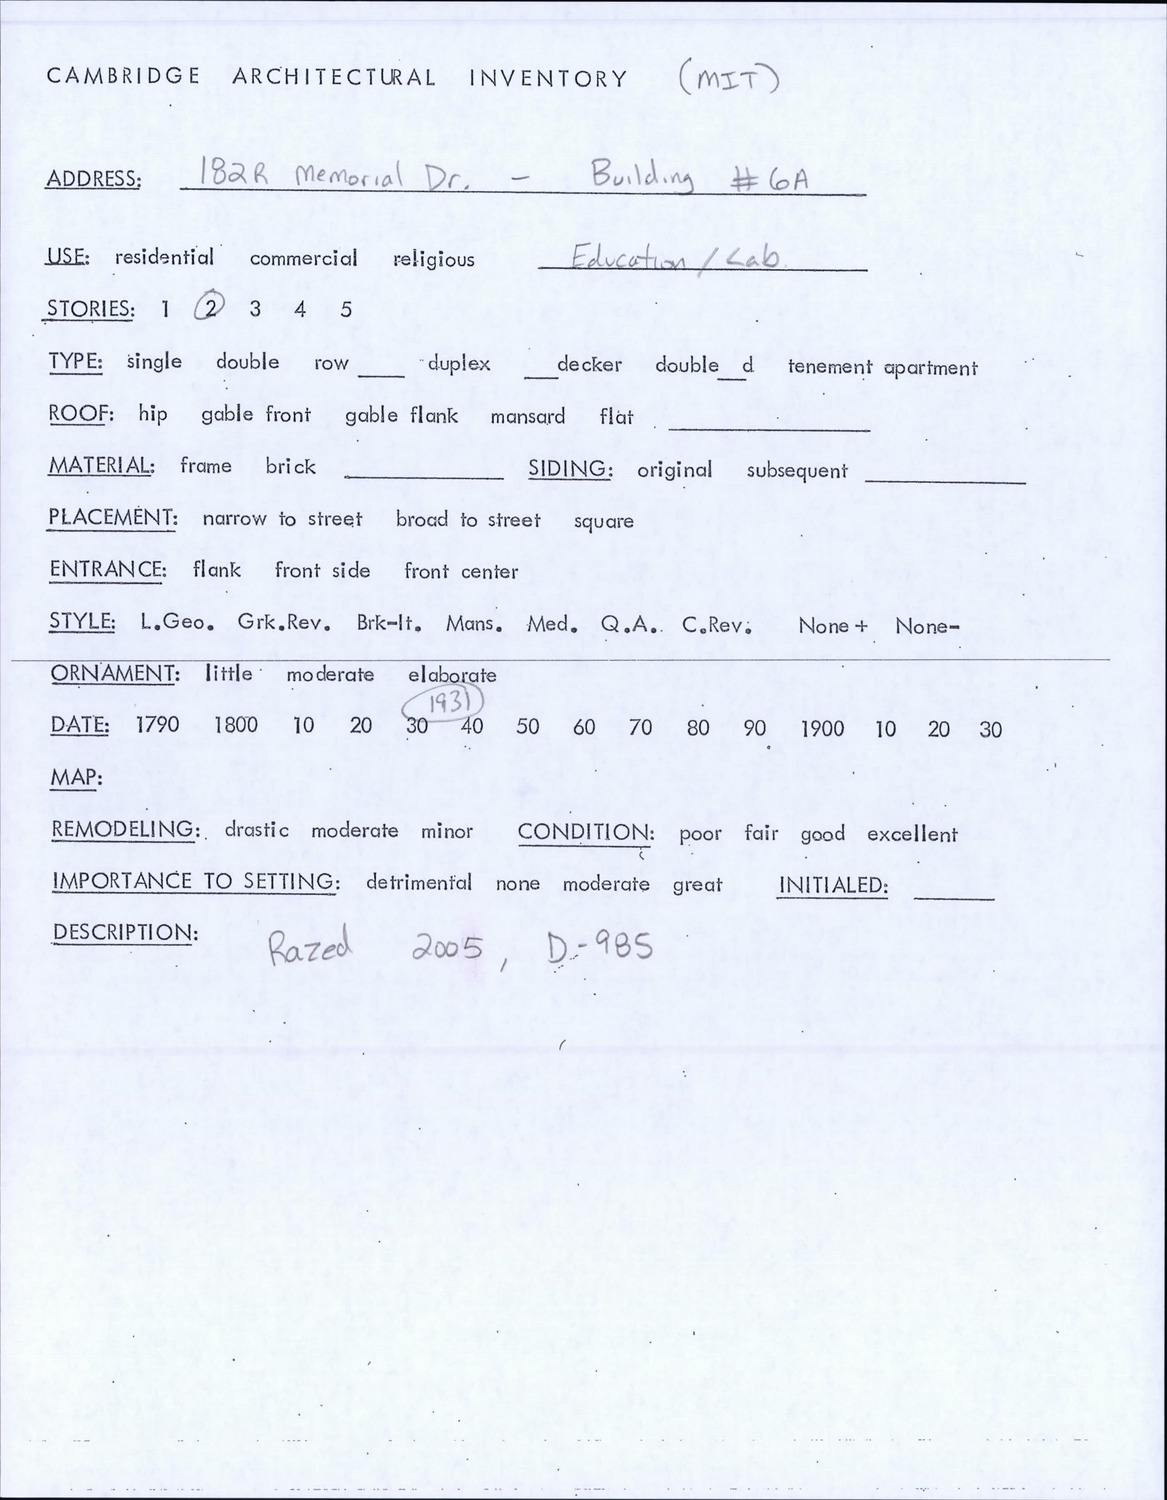 CAMBRIDGE ARCHITECTURAL INVENTORY (MIT)
ADDRESS: 182R Memorial Dr. - Building #6A
USE: residential commercial religious Education / Lab
STORIES: 1 2 3 4 5
TYPE: single double row ____ duplex ___decker double__d tenement apartment
ROOF: hip gable front gable flank mansard flat ____
MATERIAL: frame brick ____ SIDING: original subsequent ____
PLACEMENT: narrow to street broad to street square
ENTRANCE: flank front side front center
STYLE: L.Geo. Grk.Rev. Brk-It. Mans. Med. Q.A. C.Rev. None+ None-
ORNAMENT: little moderate elaborate
1931
DATE: 1790 1800 10 20 30 40 50 60 70 80 90 1900 10 20 30
MAP:
REMODELING: drastic moderate minor CONDITION: poor fair good excellent
IMPORTANCE TO SETTING: detrimental none moderate great INITIALED: ____
DESCRIPTION: Razed 2005, D-985